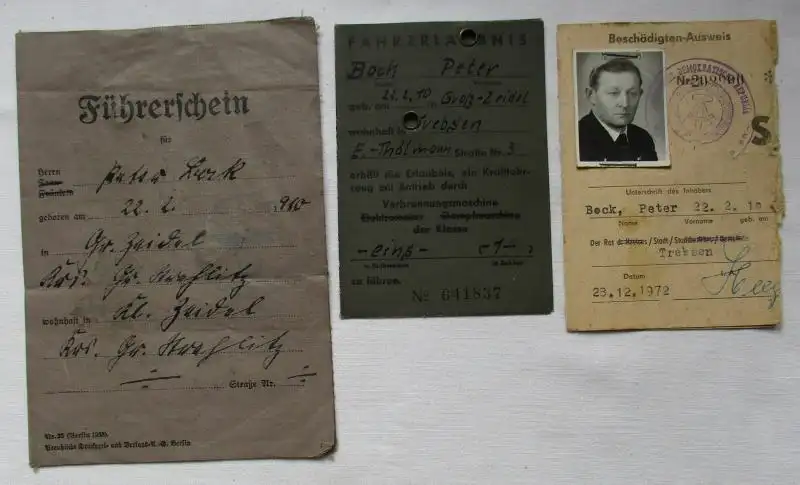 Führerschein
für
Herrn
Frau
Fräulein
Peter Bock
geboren am 22. 2. 1910
in Gr. Zeidel
Krs. Gr. Strehlitz
wohnhaft in Kl. Zeidel
Krs. Gr. Strehlitz
Straße Nr.
Nr. 25 (Berlin
Preußische Druckerei- und Verlags-A.-G. Berlin
FAHRERLAUBNIS
Bock Peter
geb. am 22.2.10 in Groß-Zeidel
wohnhaft in Trebsen
E.-Thälmann Straße Nr. 3
erhält die Erlaubnis, ein Kraftfahr-
zeug mit Antrieb durch
Verbrennungsmaschine
der Klasse
-eins- -1-
zu führen.
№ 641837
Beschädigten-Ausweis
Nr.
DEMOKRATISCHE REPUBLIK
S
Unterschrift des Inhabers
Bock, Peter 22. 2. 10
Name Vorname geb. am
Der Rat d. Kreises / Stadt /
Trebsen
Datum
23.12.1972